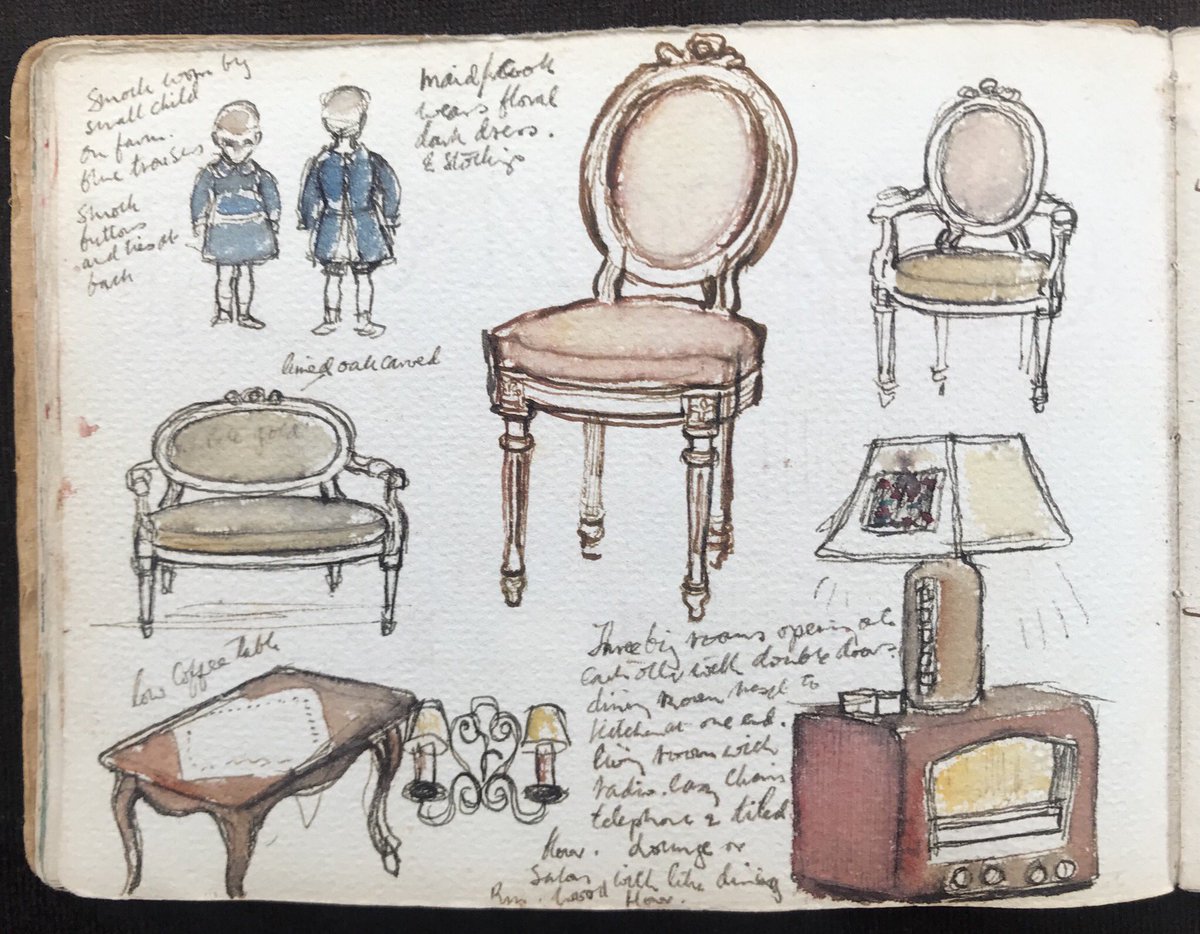 Smock worn by
small child
on farm.
blue trousers
Smock
buttons
and ties at
back
Maid/Cook
wears floral
dark dress.
& Stockings
limed oak carved
pale gold
low Coffee Table
Three big rooms opening
with double doors.
dining room next to
kitchen at one end.
living room with
radio. easy chairs
telephone & tiled
floor. Lounge or
Salon with like dining
Rm. wood floor.